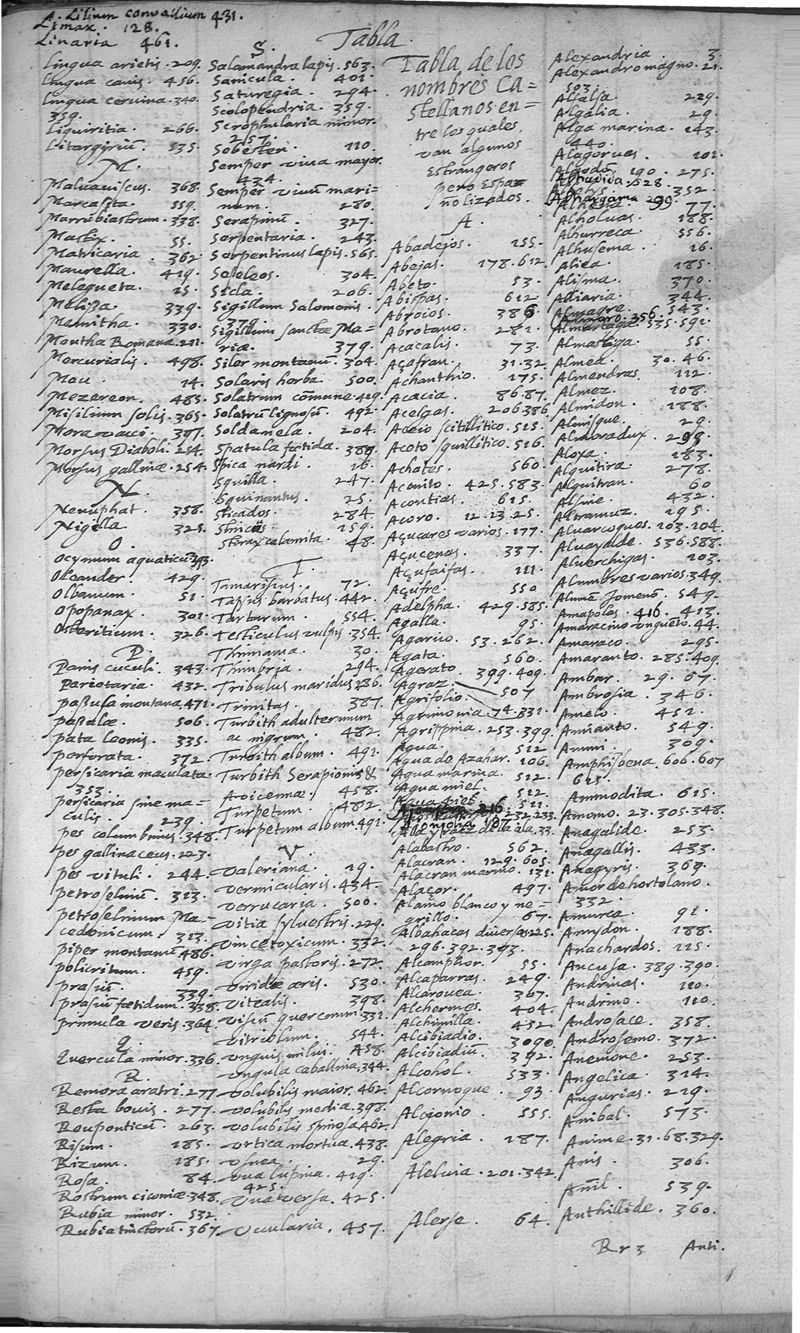 Lilium convallium 431.
Limax. 128.
Linaria 461.
Tabla.
Lingua arietis. 209.
Lingua canis. 456.
Lingua ceruina. 340.
359.
Liquiritia. 266.
Litargiriũ. 535.
M.
Maluauiscus. 368.
Marcasita. 559.
Marrubiastrum. 338.
Mastix. 55.
Matricaria. 362
Maurella. 419.
Melegueta. 15
Melissa. 339.
Memitha. 330.
Mentha Romana. 211
Mercurialis. 498.
Meu. 14.
Mezereon. 485.
Milium solis. 365.
Mora vacci. 397.
Morsus Diaboli. 254.
Morsus gallinæ. 254.
N.
Nenuphat. 358.
Nigella. 325.
O.
Ocymum aquaticũ.
Oleander. 429.
Olbanum. 51.
Opopanax. 301.
Osteritium. 326.
P.
Panis cuculi. 343.
Parietaria. 432.
passula montana. 471.
passulæ. 506.
pata leonis. 335.
perforata. 372.
persicaria maculata
353.
persicaria sine ma=
culis. 239.
pes columbinus. 348.
pes gallinaceus. 223.
pes vituli. 244.
petroselinũ. 313.
petroselinum Ma=
cedonicum. 313.
piper montanũ. 486.
policritum. 459.
prasiũ. 339.
prasiũ fœtidum. 338.
primula veris. 364.
Q.
Quercula minor. 336.
R.
Remora aratri. 277.
Resta bouis. 277.
Reuponticũ. 263.
Risum. 185.
Rizum. 185.
Rosa. 84.
Rostrum ciconiæ. 348.
Rubia minor. 532.
Rubia tinctorũ. 367.
S.
Salamandra lapis. 563.
Sanicula. 401.
Saturegia. 294.
Scolopendria. 359.
Scrophularia minor.
257.
Sebesten. 110.
Semper viua mayor.
434.
Semper viuũ mari=
num. 280.
Serapinũ. 327.
Serpentaria. 243.
Serpentinus lapis. 565.
Seseleos. 304.
Sicla. 206.
Sigillum Salomonis.
379.
Sigillum sanctæ Ma=
riæ. 379.
Siler montanũ. 304.
Solaris herba. 500.
Solatrum cõmune. 419.
Solatrũ lignosũ. 492.
Soldanela. 204.
Spatula fœtida. 389.
Spica nardi. 16.
Squilla. 247.
Squinantus. 25.
Sticados. 284.
Stincus. 159.
Storax calamita. 48.
T.
Tamariscus. 72.
Tapsus barbatus. 442.
Tartarum. 554.
Testiculus vulpis. 354.
Thimiama. 30.
Thimbria. 294.
Tribulus maridus. 386.
Trinitas. 387.
Turbith adulterinum
ac nigrum. 482.
Turbith album. 491.
Turbith Serapionis &
Auicennæ. 458.
Turpetum. 482.
Turpetum album. 491.
V.
Valeriana. 19.
Vermicularis. 434.
Verrucaria. 500.
Vitia syluestris. 229.
Vincetoxicum. 332.
Virga pastoris. 272.
Viride æris. 530.
Vitealis. 398.
Viscũ quercenum. 331.
Vitreolum. 544.
Vnguis milui. 458.
Vngula caballina. 344.
Volubilis maior. 462.
Volubilis media. 398.
Volubilis spinosa. 462.
Vrtica mortua. 438.
Vsnea. 29.
Vua lupina. 419.
Vua versa. 425.
Vuularia. 457.
Tabla de los
nombres Ca=
stellanos en=
tre los quales,
van algunos
estrangeros
pero Espa=
ñolizados.
A.
Abadejos. 155.
Abejas. 178. 612.
Abeto. 53.
Abispas. 612
Abroios. 386
Abrotano. 281.
Acacalis. 73.
Açafran. 31. 32.
Achanthio. 175.
Acacia. 86. 87.
Acelgas. 206. 386.
Aceio scitillitico. 515.
Acoto squillitico. 516.
Achates. 560.
Aconito. 425. 583.
Acontias. 615.
Acoro. 12. 23. 25.
Açucares varios. 177.
Açucenas. 337.
Açufaifas. 111.
Açufre. 550
Adelpha. 429. 585.
Agalla. 95.
Agarico. 53. 262.
Agata. 560.
Agerato 399. 409.
Agraz. 507
Agrifolio. 74. 331.
Agrimonia.
Agrippina. 253. 399.
Agua. 512
Agua de Azahar. 106.
Agua marina. 512.
Agua miel. 512
Agua piel. 511.
Alabastro. 562.
Alacran. 129. 605.
Alacran marino. 131.
Alaçor. 497.
Alamo blanco y ne=
grillo. 67.
Albahacas diuersas. 225.
296. 392. 393.
Alcamphor. 55.
Alcaparras. 249.
Alcarouea. 367.
Alchermes. 404.
Alchimilla. 432
Alcibiadio. 309.
Alcibiadiũ. 392.
Alcohol. 533.
Alcornoque. 93.
Alcionio. 555.
Alegria. 187.
Aleluia. 201. 342.
Alerse. 64.
Alexandria. 3.
Alexandro magno. 21.
503.
Alfalfa. 229.
Algalia. 29.
Alga marina. 143.
440.
Alagoruas. 101.
Algodõ. 190. 275.
528.
352.
Alhargama 299. 77.
Alholuas. 188.
Alhurreca. 556.
Alhusema. 16.
Aliea. 185.
Alisma. 370.
Alliaria. 344.
Almagre. 543.
Alinaro. 356.
Almartaga. 535. 592.
Almastiga. 55.
Almea. 30. 46.
Almendras. 112.
Almez. 108.
Almidon. 188.
Almisque. 29.
Almoradux. 293
Aloxa. 183.
Alquitira. 278.
Alquitran. 60
Alsine. 432.
Altramuz. 195.
Aluarcoques. 103. 104.
Aluayalde. 536. 588.
Aluerchigas. 103.
Alumbres varios. 549.
Alumẽ Jomenũ. 549.
Amapoles. 416. 413.
Amaracino vnguẽto. 44.
Amaraco. 295.
Amaranto. 285. 409.
Ambar. 29. 67.
Ambrosia. 346.
Amelo. 452.
Amianto. 549.
Ammi. 309.
Amphisbena. 606. 607
615.
Ammodita. 615.
Amomo. 23. 305. 348.
Anagalide. 253.
Anagallis. 433.
Anagyris. 369.
Amor de hortolano.
332.
Amurca. 91.
Amydon. 188.
Anachardos. 115.
Ancusa. 389. 390.
Andrinas. 110.
Andrino. 110.
Androsace. 358.
Androsemo. 372.
Anemone. 253.
Angelica. 314.
Angurias. 219.
Anibal. 573.
Anime. 31. 68. 329.
Anis. 306.
Añil. 539.
Anthillide. 360.
Rr3 Anti.